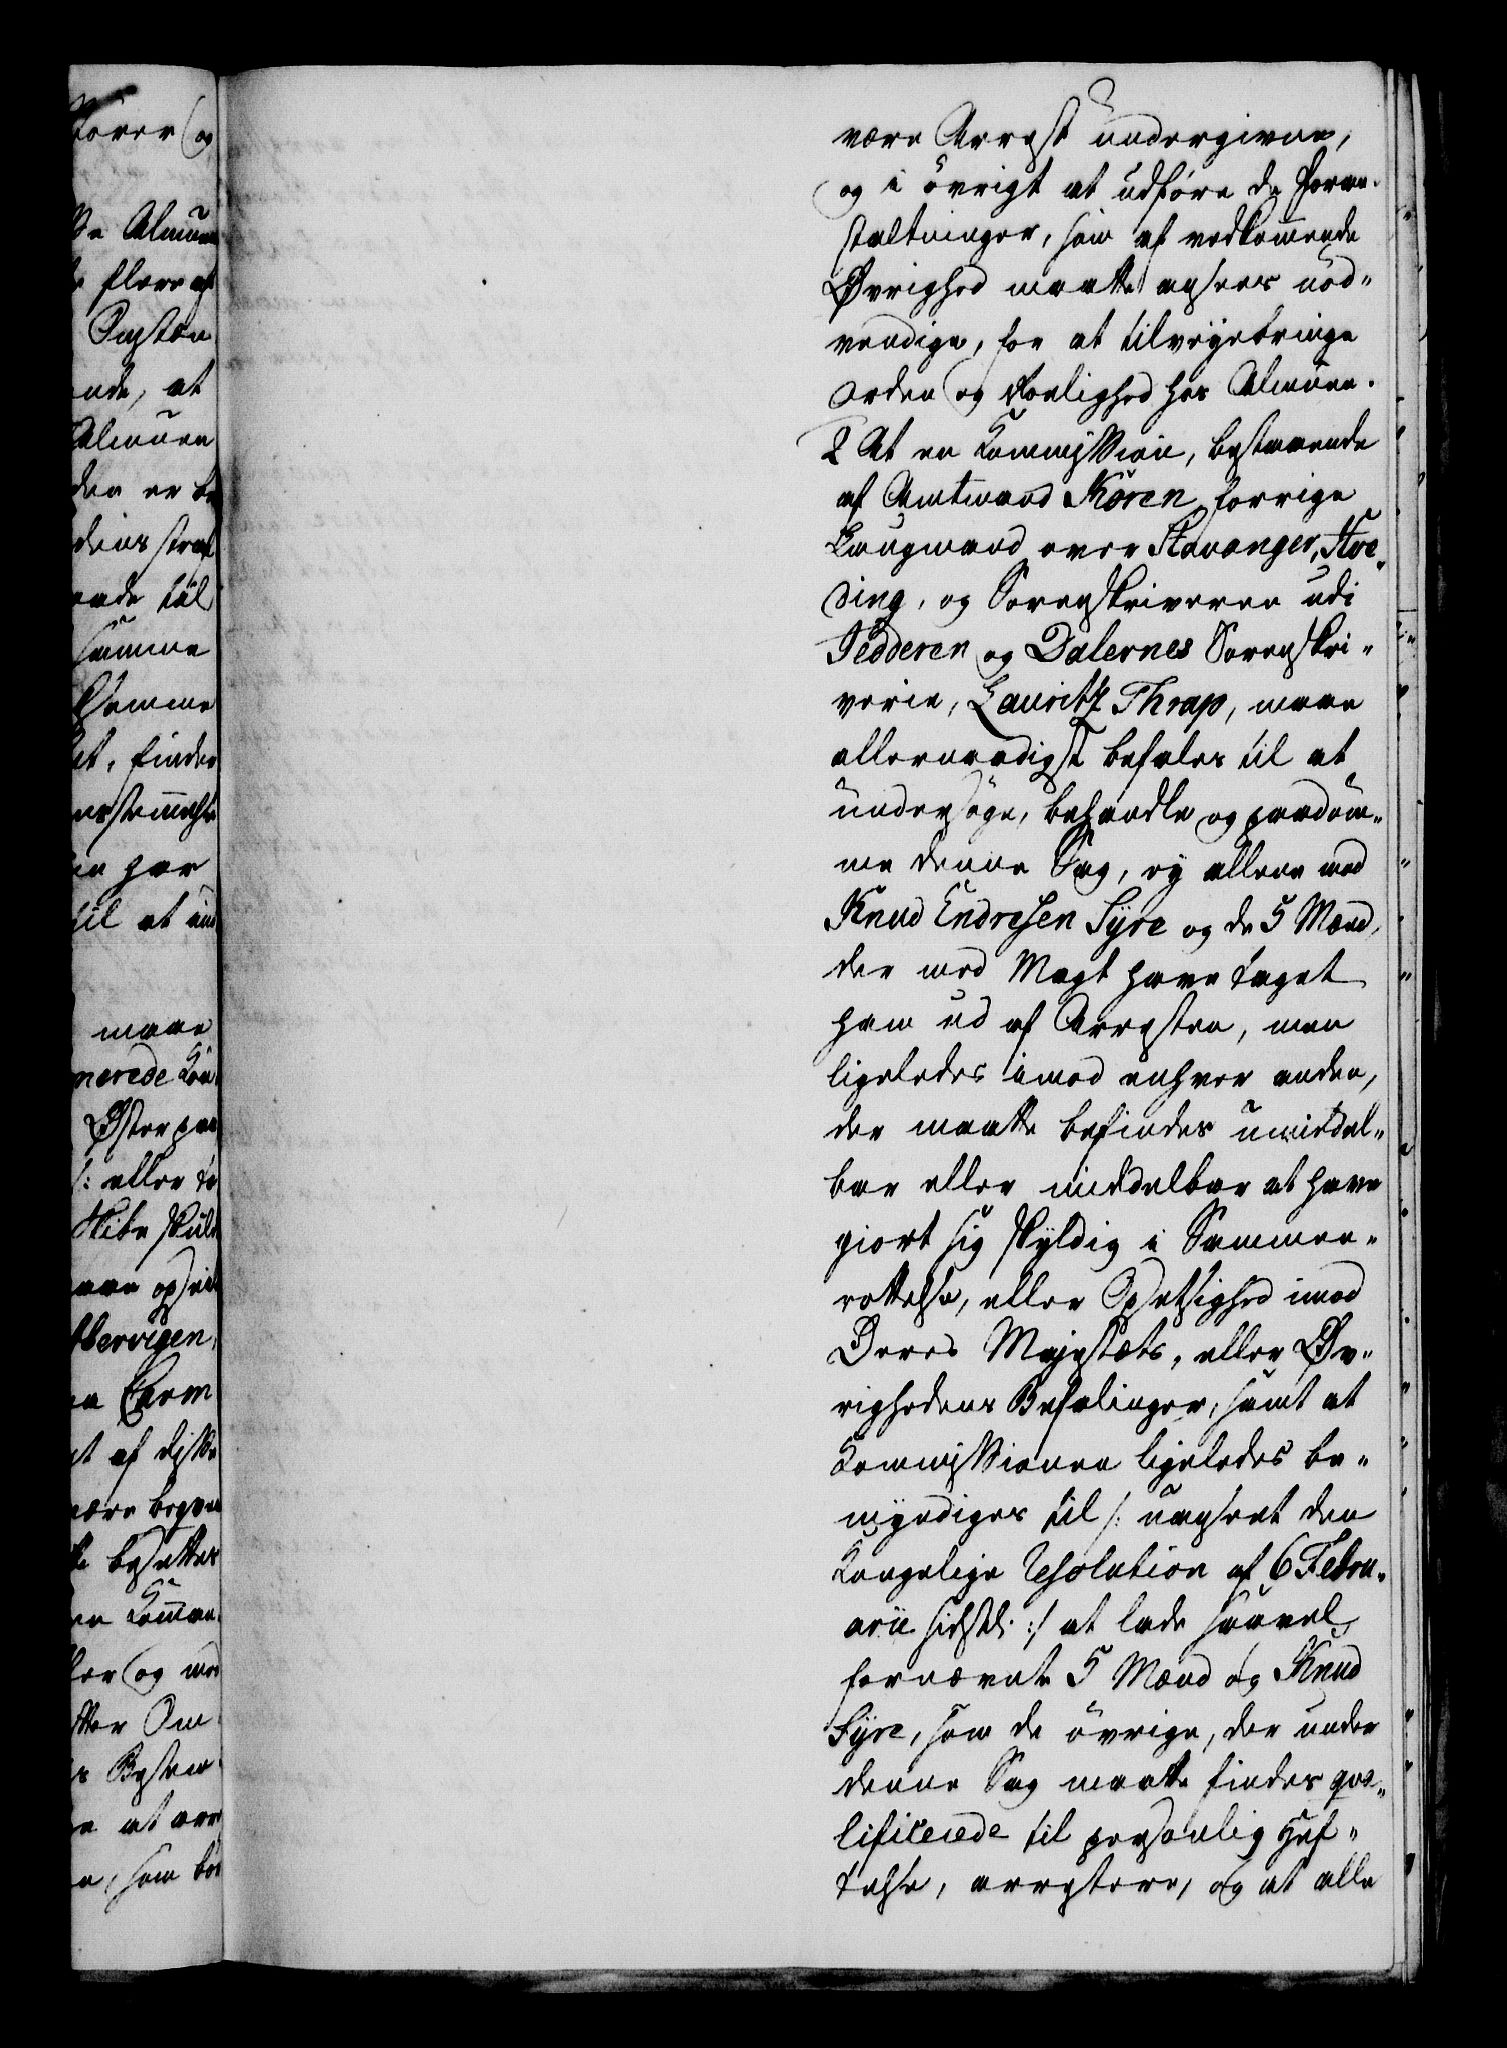 være Arrest undergivne,
og i övrigt at udføre de foran-
staltninger, som af vedkommende
Øvrighed maatte ansees nöd-
vendige, for at tilveyebringe
Orden og Roelighed hos Almuen.
2 At en Kommission, bestaaende
af Amtmand Koren, forrige
Laugmand over Stavanger, Hve-
ding, og Sorenskriveren udi
Jedderen og Dalernes Sorenskri-
verie, Lauritz Thrap, maae
allernaadigst befales til at
undersöge, behandle og paadöm-
me denne Sag, ey allene mod
Knud Endresen Syre og de 5 Mænd,
der med Magt have taget
ham ud af Arresten, men
ligeledes imod enhver anden,
der maatte befindes umiddel-
bar eller middelbar at have
giort sig skyldig i Sammen-
rottelse, eller Opsetsighed imod
Deres Majestæts, eller Øv-
righedens Befalinger, samt at
Kommissionen ligeledes be-
myndiges til /: uanseet den
Kongelige Resolution af 6 Febru-
arii sidstl. :/ at lade saavel
fornævnte 5 Mænd og Knud
Syre, som de övrige, der under
denne Sag maatte findes qva-
lificerede til personlig Hef-
telse, arrestere, og at alle